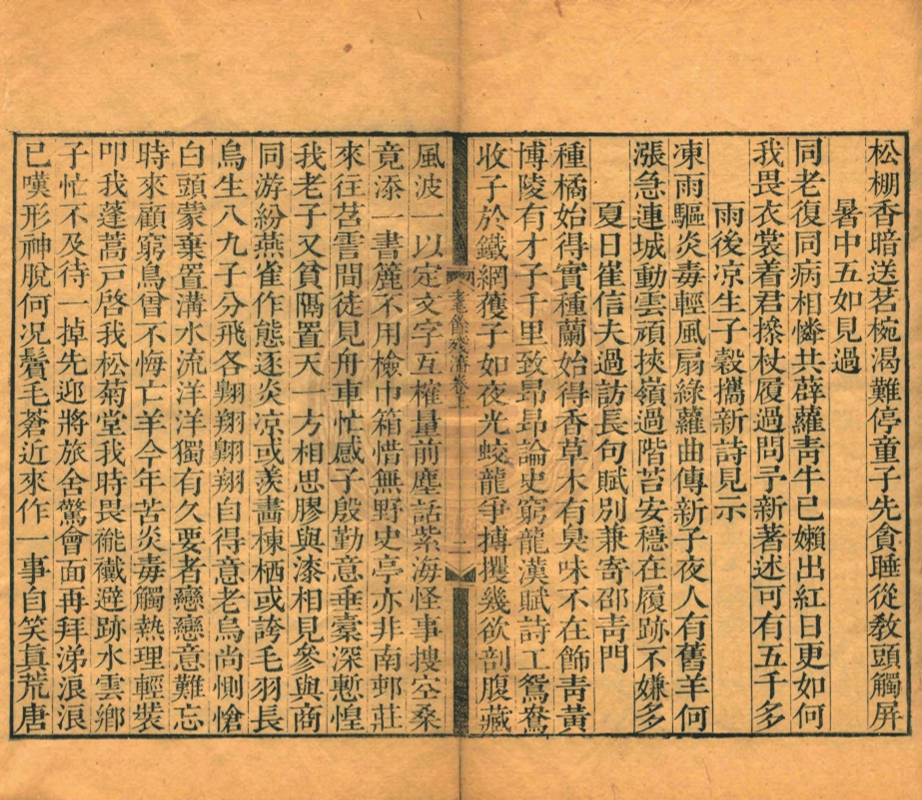 松棚香暗送茗椀渴難停童子先貪睡從敎頭觸屏
暑中五如見過
同老復同病相憐共薜蘿靑牛已嬾出紅日更如何
我畏衣裳着君摻杖履過問予新著述可有五千多
雨後凉生子穀攜新詩見示
凍雨驅炎毒輕風扇綠蘿曲傳新子夜人有舊羊何
漲急連城動雲頑挾嶺過階苔安穩在履跡不嫌多
夏日崔信夫過訪長句賦別兼寄邵靑門
種橘始得實種蘭始得香草木有臭味不在飾靑黃
博陵有才子千里致昻昻論史窮龍漢賦詩工鴛鴦
收子於鐵網獲子如夜光蛟龍爭搏攫幾欲剖腹藏
風波一以定文字互權量前塵話紫海怪事搜空桑
竟添一書簏不用檢巾箱惜無野史亭亦非南邨莊
來往苕霅間徒見舟車忙感子殷勤意垂橐深慙惶
我老子又貧隔置天一方相思膠與漆相見參與商
同游紛燕雀作態逐炎凉或羨畵棟栖或誇毛羽長
烏生八九子分飛各翺翔翺翔自得意老烏尚惻愴
白頭蒙棄置溝水流洋洋獨有久要者戀戀意難忘
時來顧窮鳥曾不悔亡羊今年苦炎毒觸熱理輕裝
叩我蓬蒿戸啓我松菊堂我時畏褦襶避跡水雲鄕
子忙不及待一掉先迎將旅舍驚會面再拜涕浪浪
已嘆形神脫何况鬢毛蒼近來作一事自笑眞荒唐